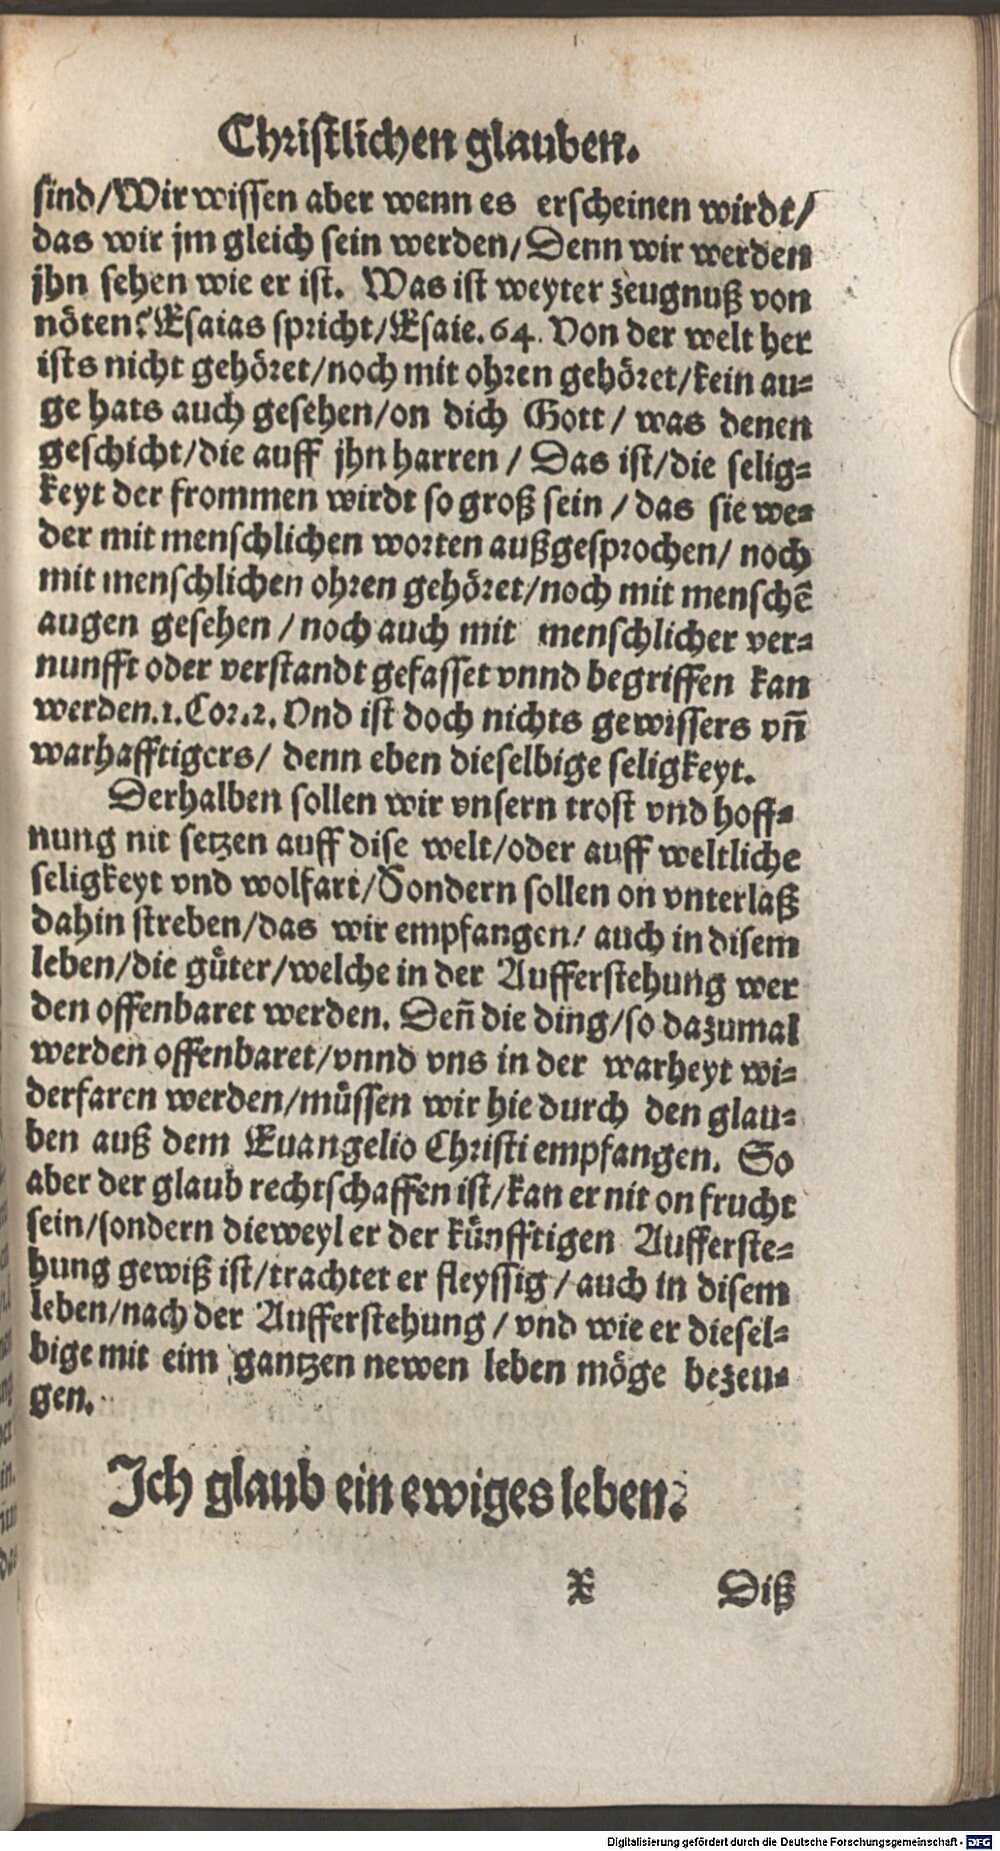 Christlichen glauben.
sind/Wir wissen aber wenn es erscheinen wirdt/
das wir jm gleich sein werden/Denn wir werden
jhn sehen wie er ist. Was ist weyter zeugnuß von
nöten? Esaias spricht/Esaie.64. Von der welt her
ists nicht gehöret/noch mit ohren gehöret/kein au⸗
ge hats auch gesehen/on dich Gott/ was denen
geschicht/die auff jhn harren / Das ist/die selig⸗
keyt der frommen wirdt so groß sein / das sie we⸗
der mit menschlichen worten außgesprochen/ noch
mit menschlichen ohren gehöret/noch mit menschẽ
augen gesehen / noch auch mit menschlicher ver⸗
nunfft oder verstandt gefasset vnnd begriffen kan
werden.1.Cor.2. Vnd ist doch nichts gewissers vñ
warhafftigers/ denn eben dieselbige seligkeyt.
Derhalben sollen wir vnsern trost vnd hoff⸗
nung nit setzen auff dise welt/oder auff weltliche
seligkeyt vnd wolfart/Sondern sollen on vnterlaß
dahin streben/das wir empfangen/ auch in disem
leben/die gůter/welche in der Aufferstehung wer
den offenbaret werden. Deñ die ding/so dazumal
werden offenbaret/vnnd vns in der warheyt wi⸗
derfaren werden/můssen wir hie durch den glau⸗
ben auß dem Euangelio Christi empfangen. So
aber der glaub rechtschaffen ist/kan er nit on frucht
sein/sondern dieweyl er der kůnfftigen Aufferste⸗
hung gewiß ist/trachtet er fleyssig / auch in disem
leben/nach der Aufferstehung / vnd wie er diesel⸗
bige mit eim gantzen newen leben möge bezeu⸗
gen.
Ich glaub ein ewiges leben.
X Diß
Digitalisierung gefördert durch die Deutsche Forschungsgemeinschaft - DFG